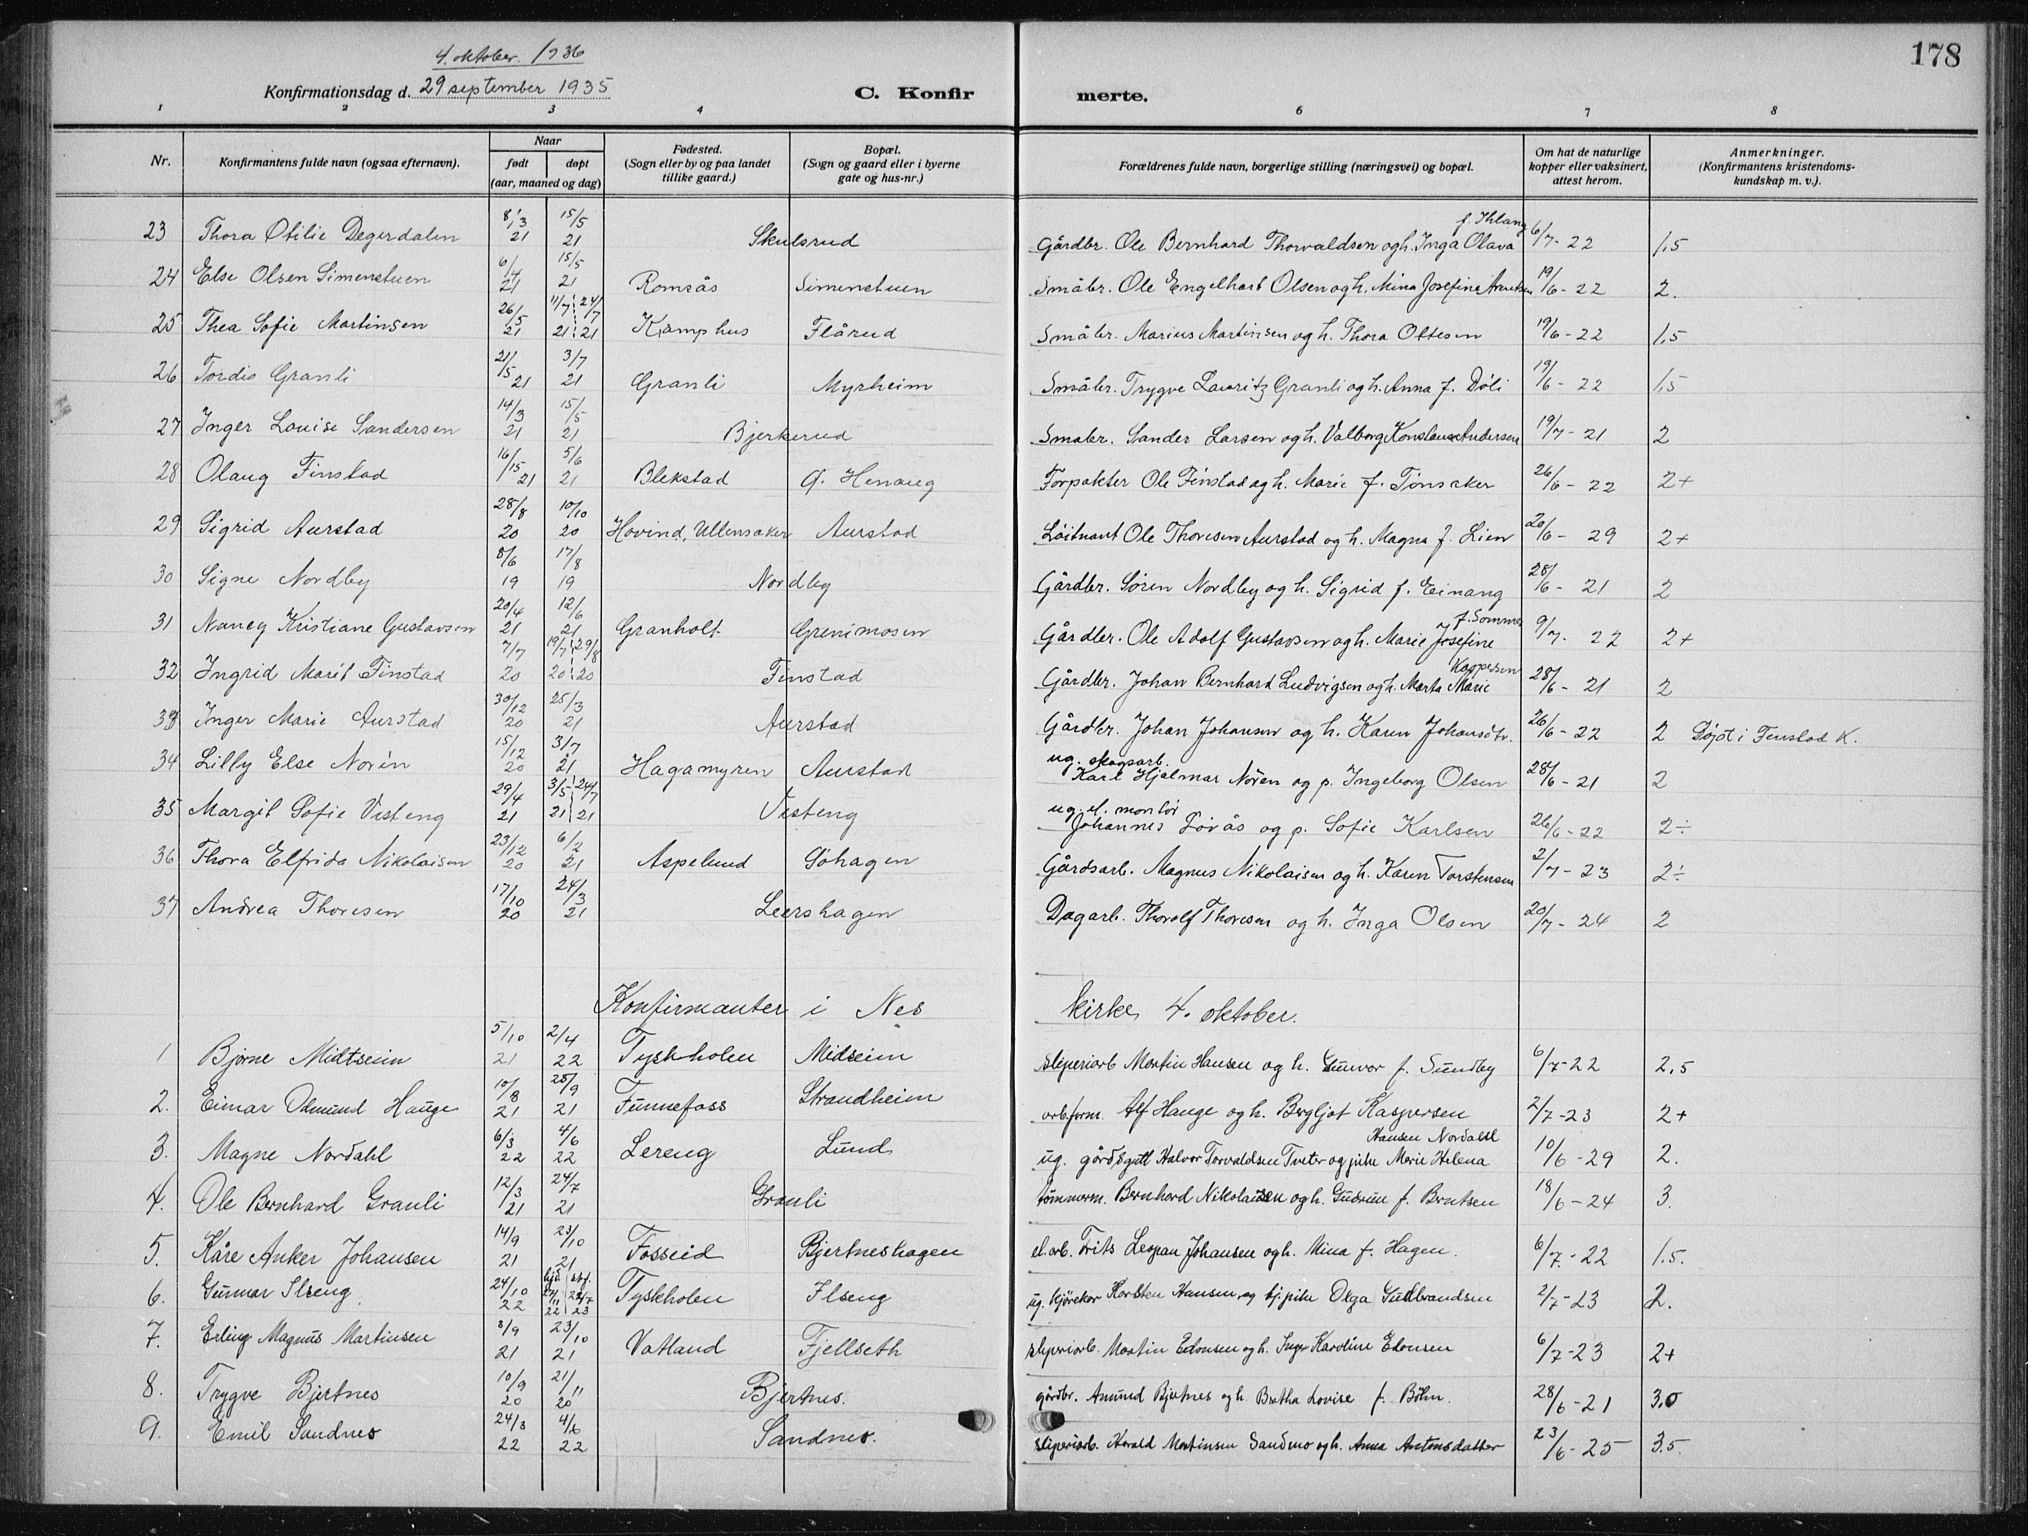 178
4. oktober 1936
Konfirmationsdag d. 29 september 1935
C. Konfirmerte.
1 2 3 4 6 7 8
Nr. Konfirmantens fulde navn (ogsaa efternavn). Naar født døpt (aar, maaned og dag) Fødested. (Sogn eller by og paa landet tillike gaard.) Bopæl. (Sogn og gaard eller i byerne gate og hus-nr.) Forældrenes fulde navn, borgerlige stilling (næringsvei) og bopæl. Om hat de naturlige kopper eller vaksinert, attest herom. Anmerkninger. (Konfirmantens kristendoms-kundskap m. v.).
23 Thora Otilie Degerdalen 8/3 21 15/5 21 Skulsrud Gårdbr. Ole Bernhard Thorvaldsen og h. Inga Olava f. Ihlang 6/7-22 1,5
24 Else Olsen Simenstuen 6/4 21 15/5 21 Romsås Simenstuen Småbr. Ole Engelhart Olsen og h. Mina Josefine Arentsen 19/6-22 2.
25 Thea Sofie Martinsen 26/5 21 11/7 21 24/7 21 Kamphus Flårud Småbr. Marius Martinsen og h. Thora Ottesen 19/6-22 1,5
26 Tordis Granli 21/5 21 3/7 21 Granli Myrheim Småbr. Trygve Lauritz Granli og h. Anna f. Døli 19/6-22 1,5
27 Inger Louise Sandersen 14/3 21 15/5 21 Bjerkerud Småbr. Sander Larsen og h. Valborg Konstanse Andersen 19/7-21 2
28 Olaug Finstad 16/15 21 5/6 21 Blekstad Ø. Henaug Forpakter Ole Finstad og h. Marie f. Tønsaker 26/6-22 2+
29 Sigrid Aurstad 28/8 20 10/10 20 Hovind, Ullensaker Aurstad Løitnant Ole Thoresen Aurstad og h. Magna f. Lien 20/6-29 2+
30 Signe Nordby 8/6 19 17/8 19 Nordby Gårdbr. Søren Nordby og h. Sigrid f. Einang 28/6-21 2
31 Nancy Kristiane Gustavsen 20/4 21 12/6 21 Granholt Grenimosen Gårdbr. Ole Adolf Gustavsen og h. Marie Josefine f. Sommer 9/7-22 2+
32 Ingrid Marit Finstad 7/7 20 19/7 20 29/8 20 Finstad Gårdbr. Johan Bernhard Ludvigsen og h. Marta Marie Kaspersen 28/6-21 2
33 Inger Marie Aurstad 30/12 20 25/3 21 Aurstad Gårdbr. Johan Johansen og h. Karen Johansdtr. 26/6-22 2 Døpt i Fenstad K.
34 Lilly Else Norén 15/12 20 3/7 21 Hagamyren Aurstad ug. skogsarb. Karl Hjalmar Norén og p. Ingeborg Olsen 28/6-21 2
35 Margit Sofie Visteng 29/4 21 3/5 21 24/7 21 Visteng ug. el. montør Johannes Løvås og p. Sofie Karlsen 26/6-22 2÷
36 Thora Elfrida Nikolaisen 23/12 20 6/2 21 Aspelund Søhagen Gårdsarb. Magnus Nikolaisen og h. Karen Torstensen 2/7-23 2÷
37 Andrea Thoresen 17/10 20 24/3 21 Leershagen Dagarb. Thorolf Thoresen og h. Inga Olsen 20/7-24 2
Konfirmanter i Nes kirke 4. oktober.
1 Bjørne Midtseim 5/10 21 2/4 22 Tyskholen Midseim sliperiarb Martin Hansen og h. Gunvor f. Sundby 6/7-22 2,5
2. Einar Odmund Hauge 10/8 21 25/9 21 Funnefoss Strandheim arb.form. Alf Hauge og h. Bergljot Kaspersen 2/7-23 2+
3. Magne Nordahl 6/3 22 4/6 22 Lereng Lund ug. gårdsgutt Halvor Torvaldsen Tveter og pike Marie Helena Hansen Nordahl 10/6-29 2.
4. Ole Bernhard Granli 12/3 21 24/7 21 Granli tømmerm. Bernhard Nikolaisen og h. Gudrun f. Berntsen 18/6-24 3.
5. Kåre Anker Johansen 14/9 21 23/10 21 Fosseid Bjertneshagen el.arb. Frits Johansen og h. Mina f. Hagen. 6/7-22 1.5.
6. Gunnar Ilseng 24/10 22 hjd. 24/11 22 stf. 22/7 23 Tyskholen Ilseng ug. kjørekar Karsten Hansen og tj.pike Olga Gudbrandsen 2/7-23 2.
7. Erling Magnus Martinsen 8/9 21 23/10 21 Vatland Fjellseth sliperiarb. Martin Edonsen og h. Inga Karoline Edonsen 6/7-23 2+
8. Trygve Bjertnes 10/9 20 21/11 20 Bjertnes. gårdbr. Amund Bjertnes og h. Bertha Lovise f. Bøhn. 28/6-21 3,0
9. Emil Sandnes 24/3 22 4/6 22 Sandnes. sliperiarb. Harald Martinsen Sandmo og h. Anna Antonsdatter 23/6-25 3.5.